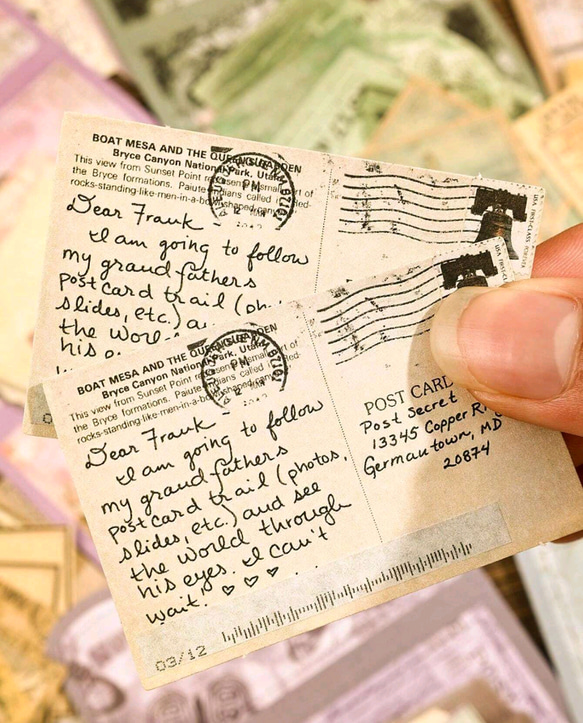 BOAT MESA AND THE QUEEN'S GARDEN
Bryce Canyon National Park, Utah
This view from Sunset Point
the Bryce formations. Paiute Indians called it
rocks-standing-like-men-in-a-bowl-shaped-canyon
PM
Dear Frank
I am going to follow
my grandfathers
postcard trail (ph
slides, etc.) a
the world
his e
USA FIRST-CLASS FOREVER
BOAT MESA AND THE QUEEN'S GARDEN
Bryce Canyon National Park, Utah
This view from Sunset Point
the Bryce formations. Paiute Indians called it
rocks-standing-like-men-in-a-bowl-shaped-canyon
PM
Dear Frank
I am going to follow
my grandfathers
postcard trail (photos,
slides, etc.) and see
the world through
his eyes. I can't
wait. ♡ ♡ ♡
POST CARD
Post Secret
13345 Copper
Germantown, MD
20874
03/12